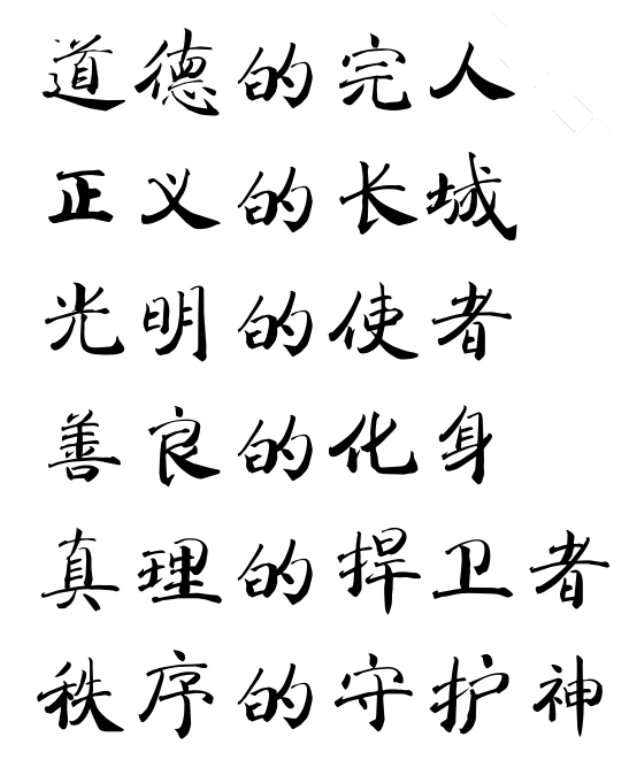 道德的完人
正义的长城
光明的使者
善良的化身
真理的捍卫者
秩序的守护神